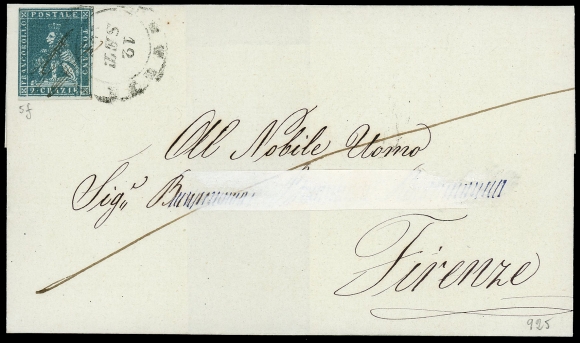 FRANCOBOLLO POSTALE TOSCANO
2 CRAZIE
12
5f
Al Nobile Uomo
Sigr
Firenze
925